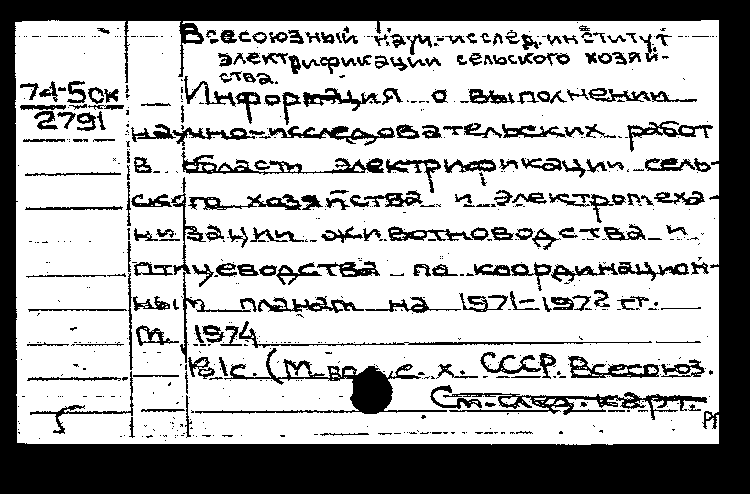 Всесоюзный науч.-исслед. институт
электрификации сельского хозяй-
ства.
74-5ок
2791
Информация о выполнении
научно-исследовательских работ
в области электрификации сель-
ского хозяйства и электромеха-
низации животноводства и
птицеводства по координацион-
ным планам на 1971-1972 гг.
М. 1974
181с. (М-во с. х. СССР. Всесоюз.
См.след.карт.